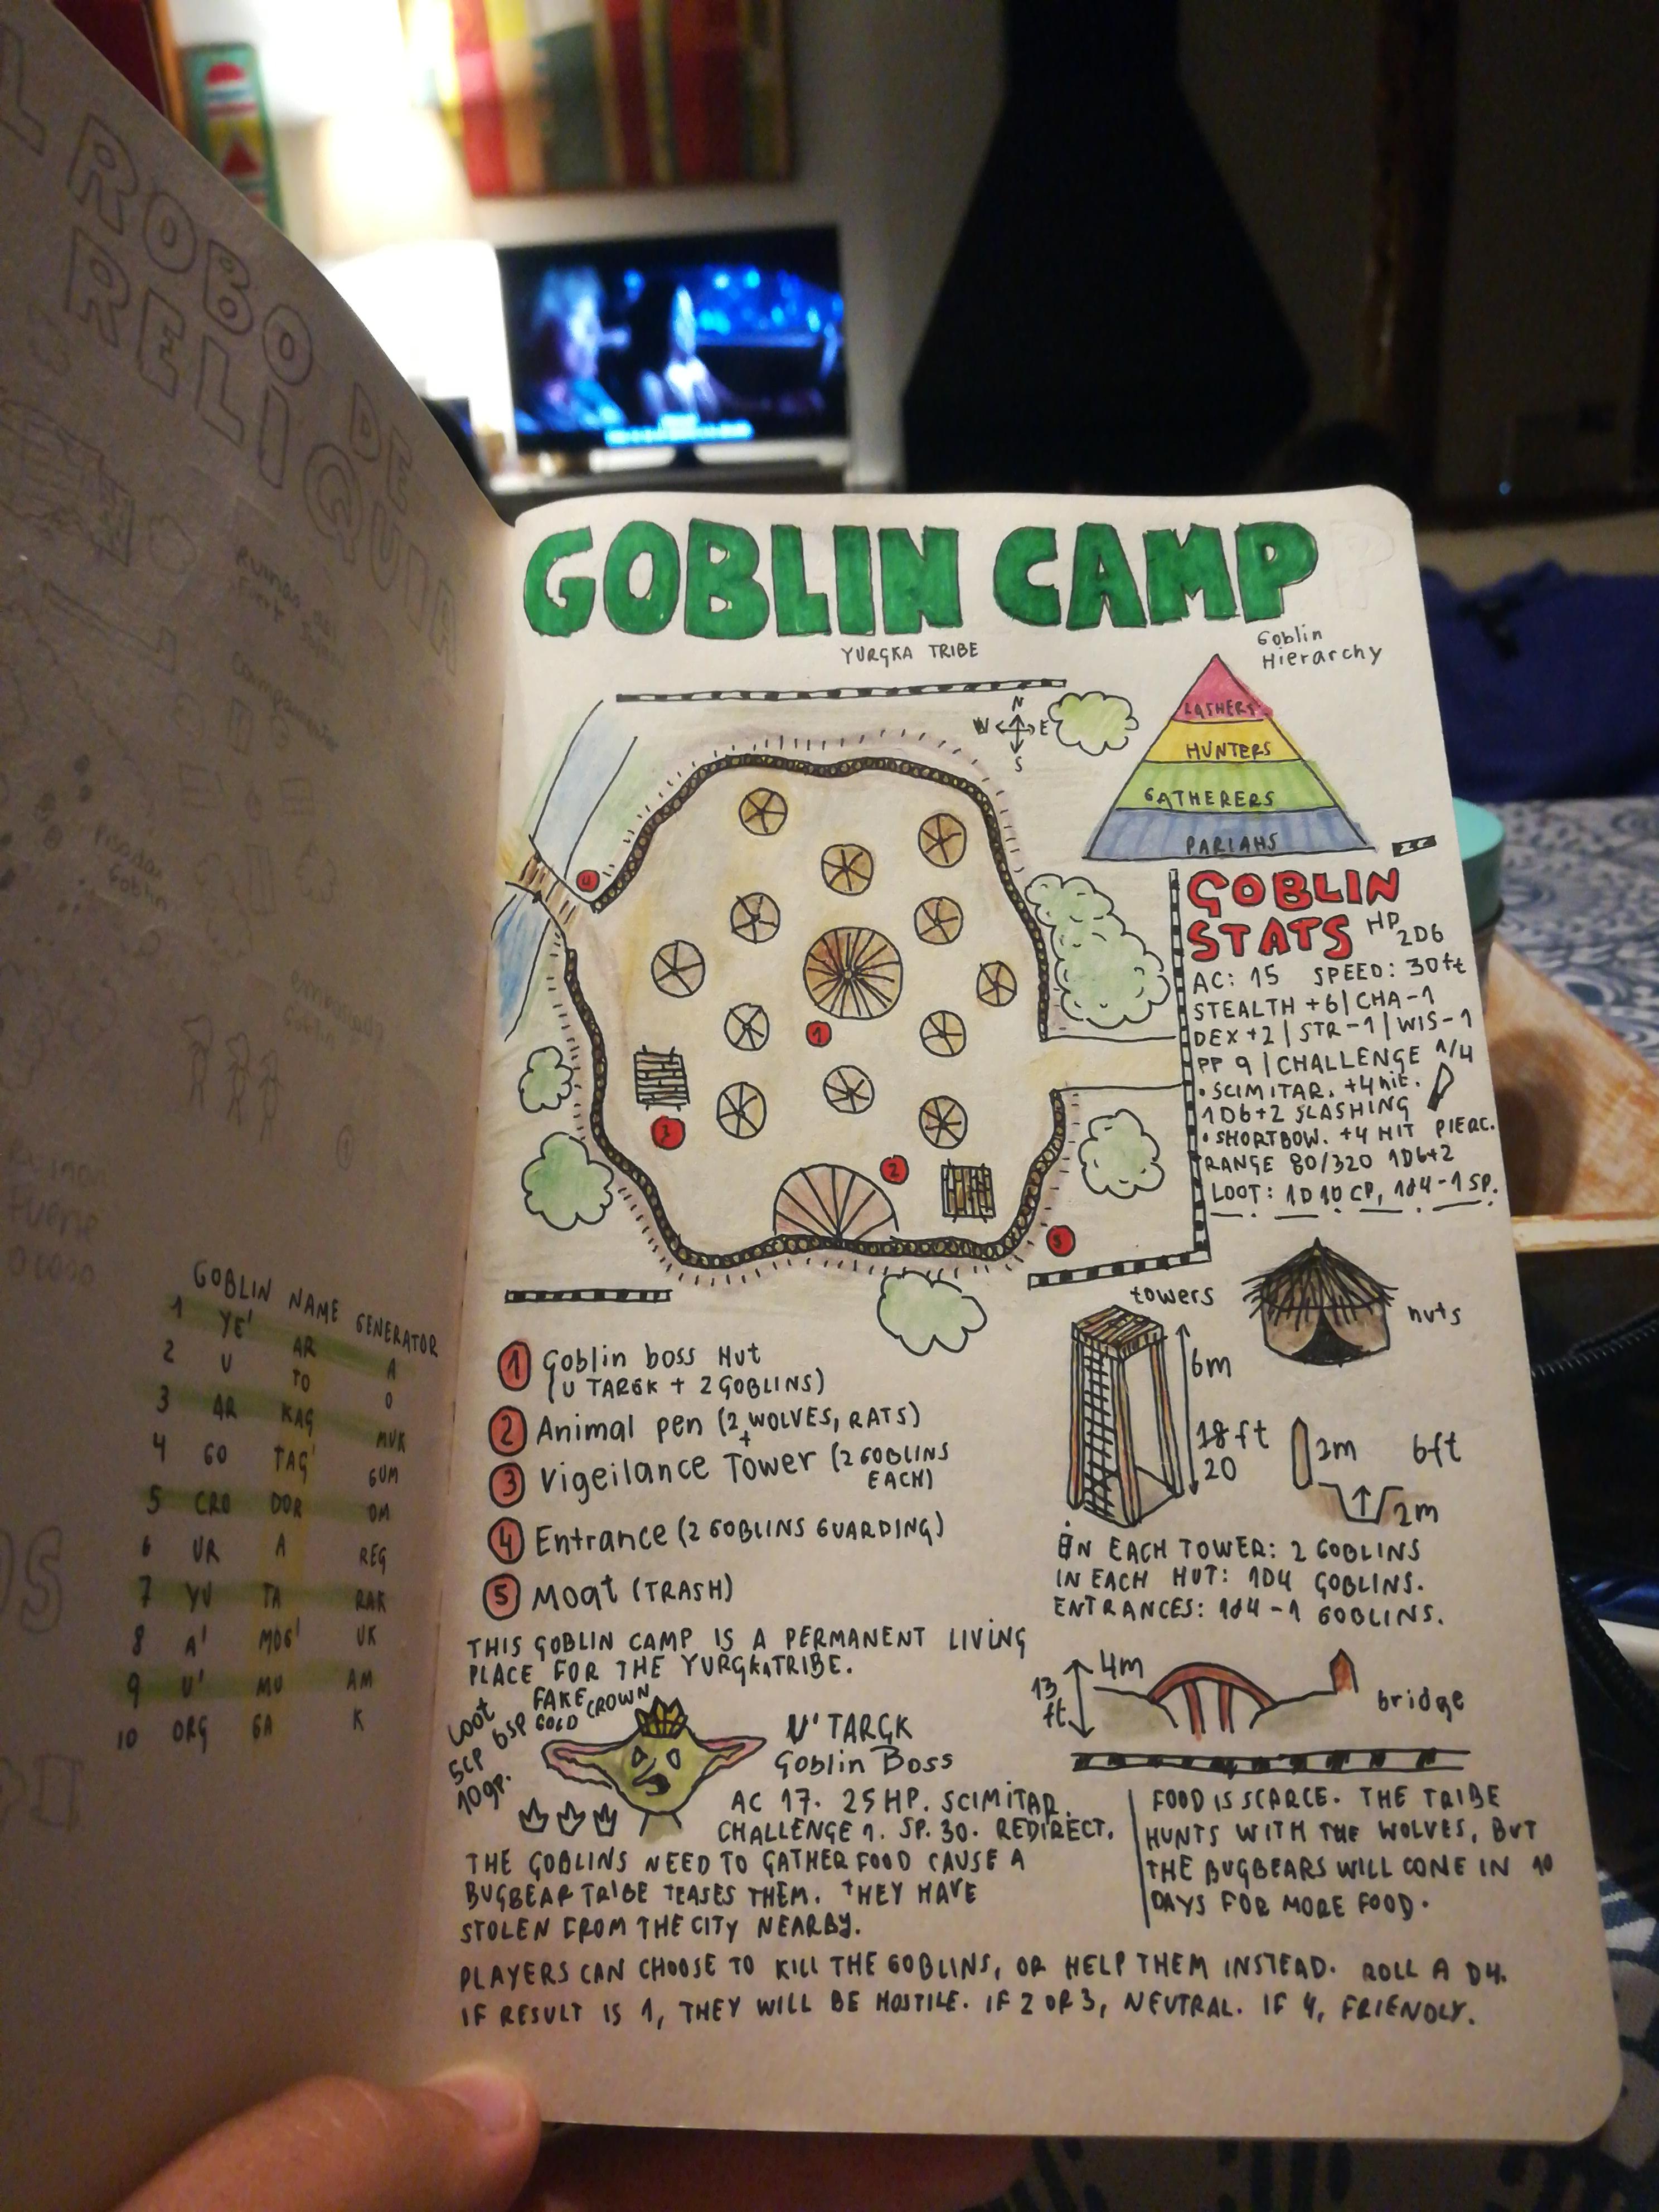 L ROBO DE
RELIQUIA
Ruinas del
Fuerte
campamentos
Pisadas
Goblin
GOBLIN NAME GENERATOR
1 YE' AR A
2 U TO O
3 AR KAG MUK
4 GO TAG' GUM
5 CRO DOR OM
6 UR A REG
7 YU TA RAK
8 A' MOG' UK
9 U' MU AM
10 ORG GA K
GOBLIN CAMP
YURGKA TRIBE
Goblin
Hierarchy
LASHERS
HUNTERS
GATHERERS
PARIAHS
N
W E
S
4
1
3
2
5
GOBLIN
STATS HP 2D6
AC: 15 SPEED: 30ft
STEALTH +6 | CHA-1
DEX+2 | STR-1 | WIS-1
PP 9 | CHALLENGE 1/4
• SCIMITAR. +4 hit.
1D6+2 SLASHING
• SHORTBOW. +4 HIT PIERC.
RANGE 80/320 1D6+2
LOOT: 1D10 CP, 1d4-1 SP.
1 Goblin boss Hut
(U TARGK + 2 GOBLINS)
2 Animal pen (2 WOLVES, RATS)
+
3 Vigeilance Tower (2 GOBLINS
EACH)
4 Entrance (2 GOBLINS GUARDING)
5 Moat (TRASH)
towers
huts
6m
18ft
20
2m 6ft
2m
IN EACH TOWER: 2 GOBLINS
IN EACH HUT: 1D4 GOBLINS.
ENTRANCES: 1d4-1 GOBLINS.
THIS GOBLIN CAMP IS A PERMANENT LIVING
PLACE FOR THE YURGKA TRIBE.
4m
13
ft
bridge
Loot
5CP 6SP
10gp.
FAKE
GOLD CROWN
U' TARGK
Goblin Boss
AC 17. 25 HP. SCIMITAR.
CHALLENGE 1. SP. 30. REDIRECT.
THE GOBLINS NEED TO GATHER FOOD CAUSE A
BUGBEAR TRIBE TEASES THEM. THEY HAVE
STOLEN FROM THE CITY NEARBY.
FOOD IS SCARCE. THE TRIBE
HUNTS WITH THE WOLVES, BUT
THE BUGBEARS WILL CONE IN 10
DAYS FOR MORE FOOD.
PLAYERS CAN CHOOSE TO KILL THE GOBLINS, OR HELP THEM INSTEAD. ROLL A D4.
IF RESULT IS 1, THEY WILL BE HOSTILE. IF 2 OR 3, NEUTRAL. IF 4, FRIENDLY.